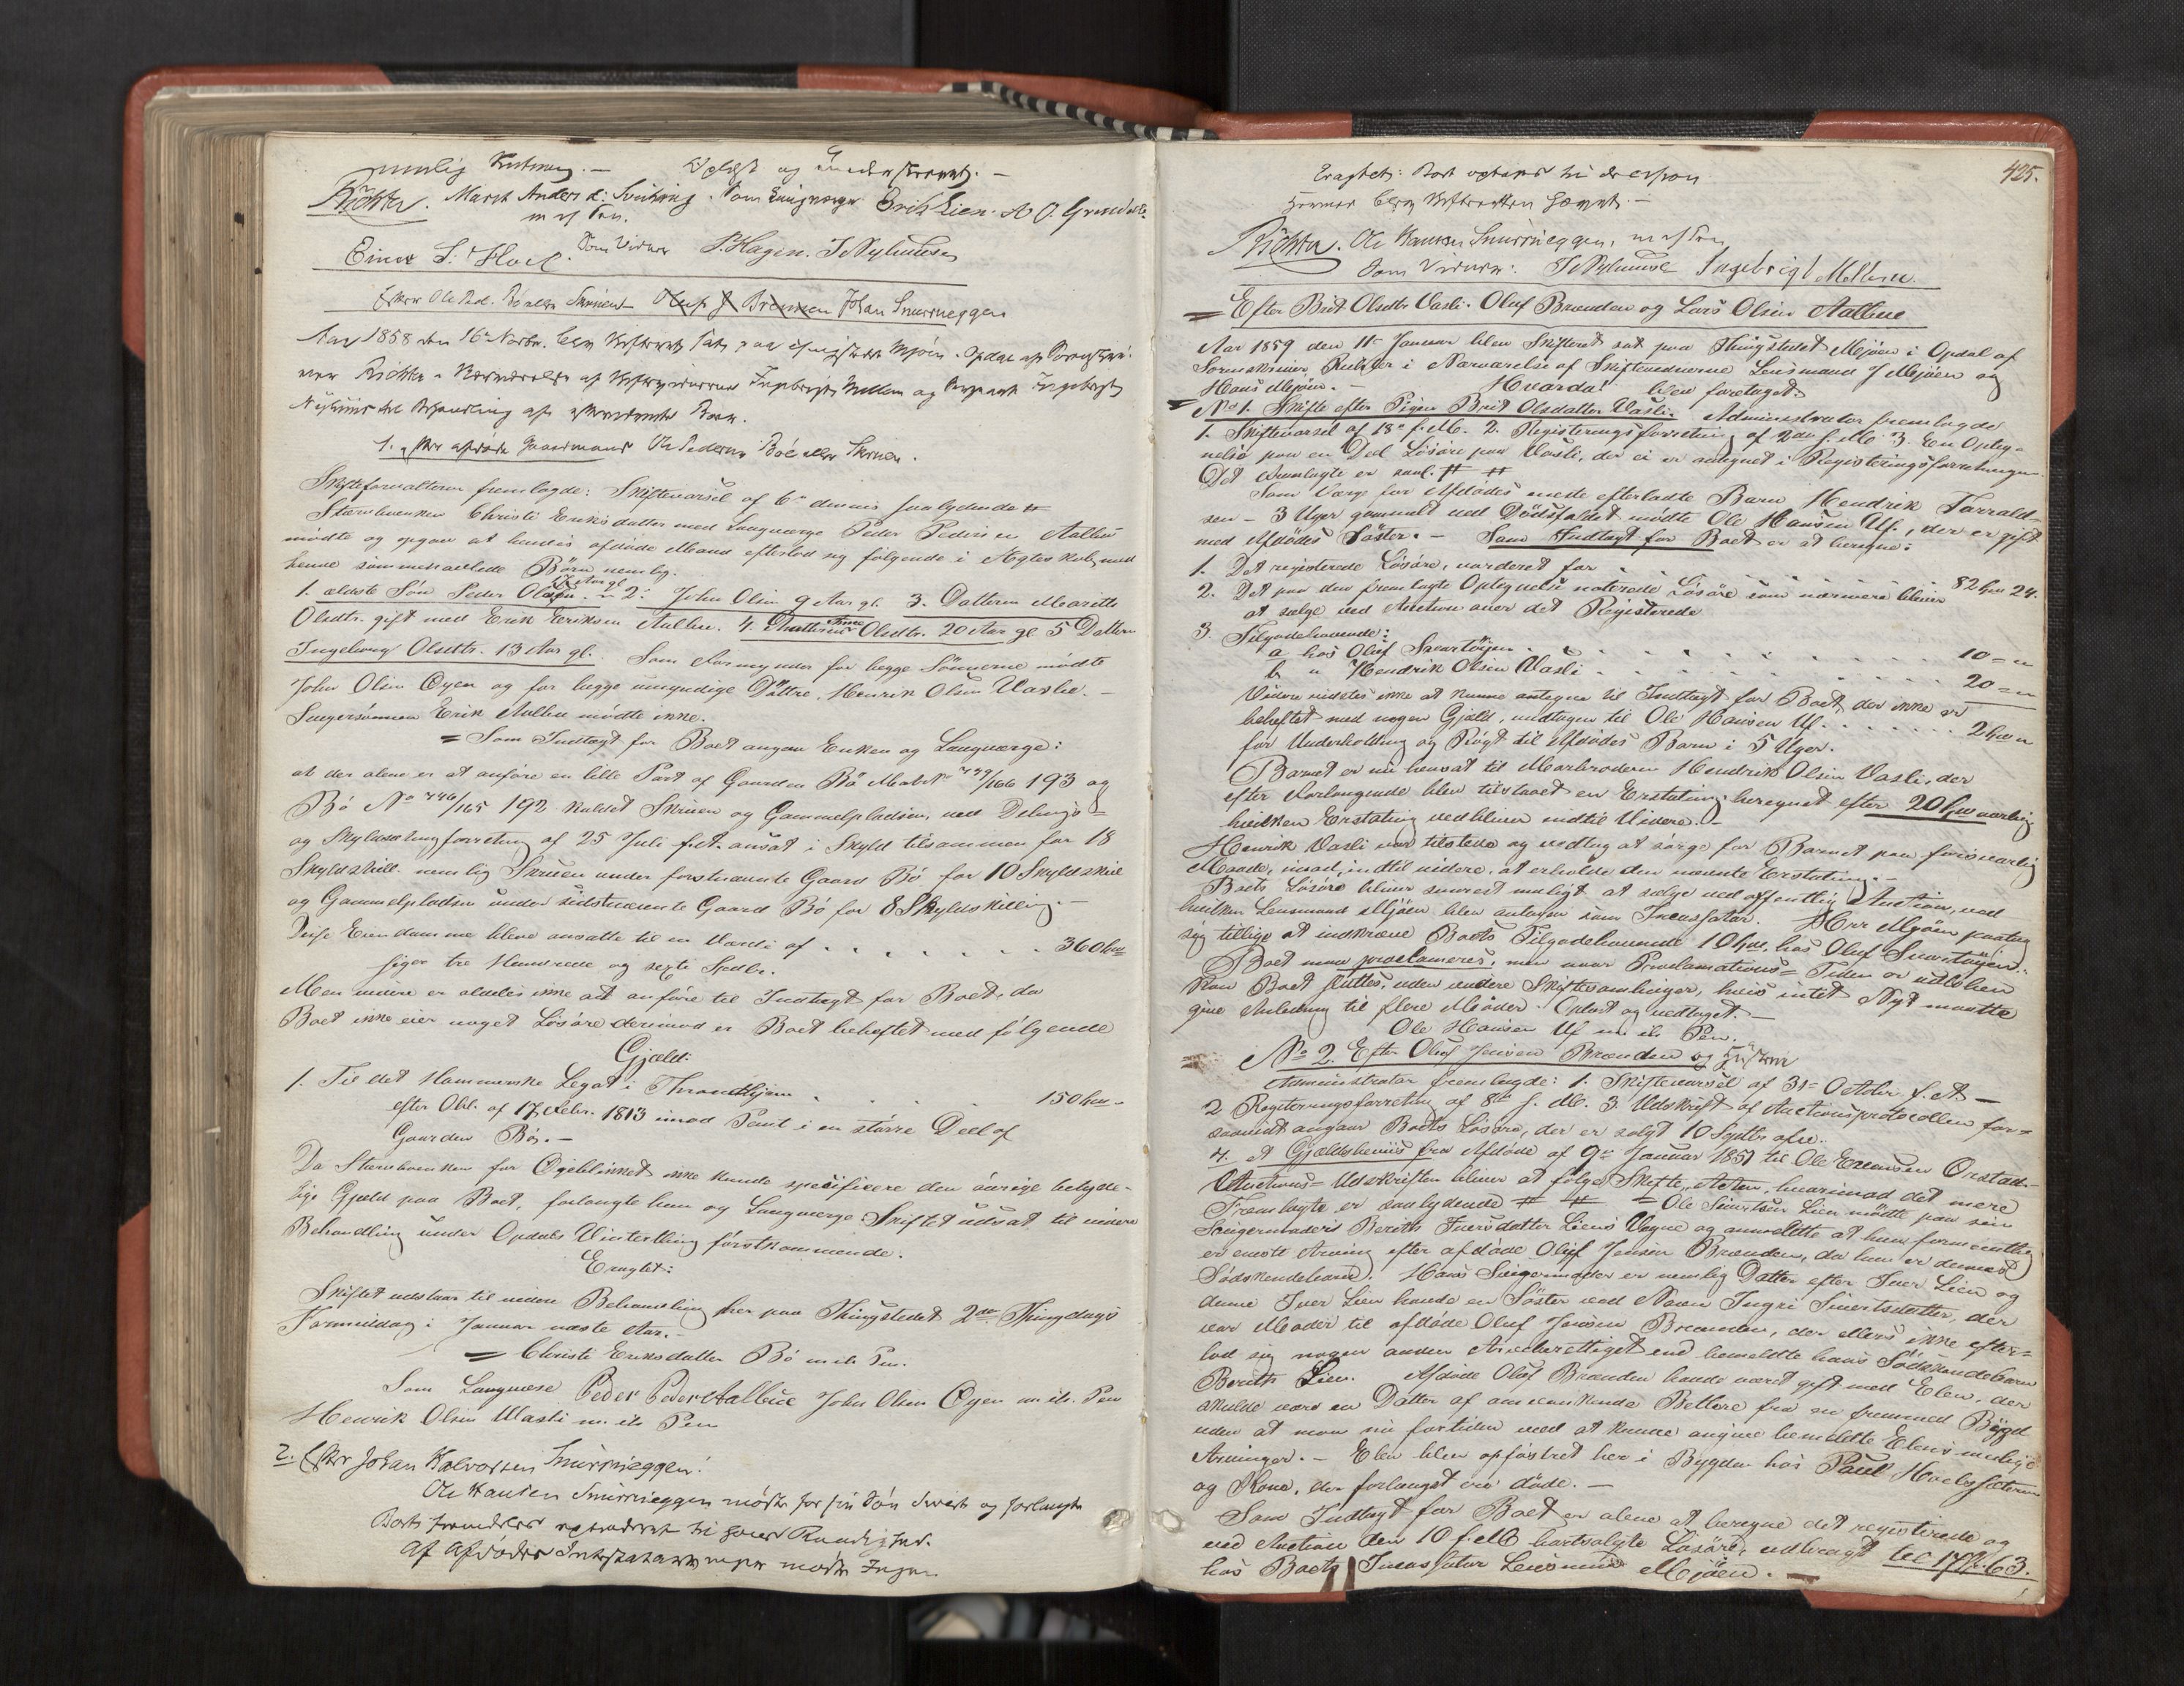 nemlig Oplæst og underskrevet. –
Richter. Marit Andersd: Som Laugværge Erik Lien. A O.
m ih Pen.
Einar S. Hoel. Som Vidner P. Hagen. I Nyhuus
Efter Ole Ped. Bö eller Skruen – Oluf J Brennen Johan Snurueggen
Aar 1858 den 16de Novbr. blev Skifteret sat paa Mjöen i Opdal af Sorenskri-
ver Richter i Nærværelse af Skiftevidnerne Ingebrigt Mellem og Ingebrigt
Nyhuus til Behandling af Boer.
1. Efter afdøde Gaardmand Ole Pedersen Bö eller Skruen.
Skifteforvalteren fremlagde: Skiftevarsel af 6te dennes saalydende #
Stervboenken Christi Eriksdatter med Laugværge Peder Pedersen Aalbu
mödte og opgav at hendes afdöde Mand efterlod sig fölgende i Ægteskab med
hende sammenavlede Börn nemlig.
1. ældste Sön Peder Olsen 17 Aar gl. 2: John Olsen 9 Aar gl. 3. Datteren Maritte
Olsdtr. gift med Erik Eriksen Aalbu. 4. Olsdtr. 20 Aar gl 5 Datteren
Ingeborg Olsdtr. 13 Aar gl. Som Formynder for begge Sönnerne mödte
John Olsen Öyen og for begge umyndige Döttre, Henrik Olsen Vaslie. –
Svigersönnen Erik Aalbu mödte ikke.
= Som Indtægt for Boet angav Enken og Laugværge:
at der alene er at anföre en lille Part af Gaarden Bö Matr No /166 193 og
Bö No 446/165 192 kaldet Skruen og Gammelpladsen, ved Delings=
og Skyldsætningsforretning af 25 Juli f.A. ansat i Skyld tilsammen for 18
Skyldskill. nemlig Skruen under förstnævnte Gaard Bö for 10 Skyldskill
og Gammelpladsen under sidstnævnte Gaard Bö for 8 Skyldskilling. –
Disse Eiendomme bleve ansatte til en Værdi af . . . . . . . 360
siger tre Hundrede og sexti Spdlr.
Men videre er aldeles ikke at anföre til Indtægt for Boet, da
Boet ikke eier noget Lösöre derimod er Boet beheftet med fölgende
Gjæld:
1. Til det Hammerske Legat i Throndhjem . . . . 150
efter Obl. af 17 Febr. 1813 imod Pant i en större Deel af
Gaarden Bö. –
Da Stervboenken for Öieblikket ikke kunde specificere den övrige betyde-
lige Gjæld paa Boet, forlangte hun og Laugværge Skiftet udsat til videre
Behandling under Opdals Vinterthing förstkommende.
Eragtet:
Skiftet udstaar til videre Behandling her paa Thingstedet 2det Thingdags
Formiddag i Januar næste Aar. –
= Christi Eriksdatter Bö m ih Pen.
Som Laugvære Peder Peder Aalbue John Olsen Öyen m ih. Pen
Henrik Olsen Vasli m. ih Pen
2. Efter Johan Halvorsen Snurueggen:
Ole Hansen Snurueggen mödte for sin Sön Sivert og forlangte
Boets til
Af Afdödes mödte Ingen.
425.
Eragtet: Boet optages til
Hermed blev Skifteretten hævet. –
Richter. Ole Hansen Snurueggen, m ih Pen
Som Vidner: I Nyhuus Ingebrigt Mellem.
= Efter Brit Olsdtr Vasli. Oluf Brænden og Lars Olsen Aalbue
Aar 1859 den 11te Januar blev Skifteret sat paa Thingstedet Mjöen i Opdal af
Sorenskriver Richter i Nærværelse af Skiftevidnerne Lensmand J Mjöen og
Hans Mjöen. – Hvorda! blev foretaget:
= No 1. Skifte efter Pigen Brit Olsdatter Vasli. Administrator fremlagde
1. Skiftevarsel af 18de f.M. 2. Registeringsforretning af 2den f.M. 3. En Opteg-
nelse paa en Deel Lösöre paa Vasli, der ei er antegnet i Registeringsforretningen
Det Fremlagte er saal. # #
Som Værge for Afdödes eneste efterladte Barn Hendrik Tarrald-
sen – 3 Uger gammelt ved Dödsfaldet mödte Ole Hansen Uf, der er gift
med Afdödes Söster. – Som Indtægt for Boet er at beregne:
1. Det registerede Lösöre, vurderet for . . . . . . . . . 82 24.
2. Det paa den fremlagte Optegnelse noterede Lösöre som nærmere bliver
at sælge ved Auction over det Registerede
3. Tilgodehavende:
a hos Oluf Snartöyen . . . . . . . . . . . 10 = „
b „ Hendrik Olsen Vasli . . . . . . . . . . 20 = „
Videre vidstes ikke at kunne antegne til Indtægt for Boet, der ikke er
beheftet med nogen Gjæld, undtagen til Ole Hansen Uf . . . . . . . 2 „
for Underholdning og Rögt til Afdödes Barn i 5 Uger.
Barnet er nu hensat til Morbroderen Hendrik Olsen Vasli, der
efter Forlangende blev tilstaaet en Erstatning beregnet efter 20 aarlig
hvilken Erstatning vedbliver indtil Videre. –
Henrik Vasli var tilstede og vedtog at sörge for Barnet paa forsvarlig
Maade, imod, indtil videre, at erholde den nævnte Erstatning. –
Boets Lösöre bliver snarest muligt at sælge ved offentlig Auction, ved
hvilken Lensmand Mjöen blev antagen som Incassator. Hr Mjöen paatog
sig tillige at indkræve Boets Tilgodehavende 10 hos Oluf Snartöyen.
Boet maa proclameres, men naar Proclamations= Tiden er udloben
kan Boet sluttes, uden videre Skiftesamlinger, hvis intet Nyt maatte
give Anledning til flere Möder. Oplæst og vedtaget. –
Ole Hansen Uf m ih Pen.
= No 2. Efter Oluf Jensen Brænden og Hustru
Administrator fremlagde: 1. Skiftevarsel af 31te October f.A. –
2 Registeringsforretning af 8de f. M. 3. Udskrift af Auctionsprotocollen for=
saavidt angaar Boets Lösöre, der er solgt 10 Septbr
4. et Gjældsbeviis fra Afdöde af 9de Januar 1851 til Ole Orstad –
Auctions= Udskriften bliver at fölge Skifte„Acten, hvorimod det mere
Fremlagte er saalydende # # = Ole Sivertsen Lien mödte paa sin
Svigermoders Berith Iversdatter Liens Vegne og anmeldte at hun formentlig
er eneste Arving efter afdöde Oluf Jensen Brænden, da hun er dennes
Södskendebarn. Hans Svigermoder er nemlig Datter efter Iver Lien og
denne Iver Lien havde en Söster ved Navn Ingri Sivertsdatter, der
var Moder til afdöde Oluf Jensen Brænden, der ellers ikke efter=
lod sig nogen anden Arveberettiget end bemeldte hans Södskendebarn
Berith Lien. Afdöde Oluf Brænden havde været gift med Elen, der
skulde være en Datter af omvankende Betlere fra en fremmed Bygd
uden at man nu fortiden ved at kunne angive bemeldte Elens mulige
Arvinger. – Elen blev opföstret her i Bygden hos Paul Hoelssæteren
og Kone, der forlængst ere döde. –
Som Indtægt for Boet er alene at beregne det registerede og
ved Auction den 10 f.M bortsolgte Lösöre, udbragt til 17 63.
hos Boets Incassator Lensmand Mjöen. –